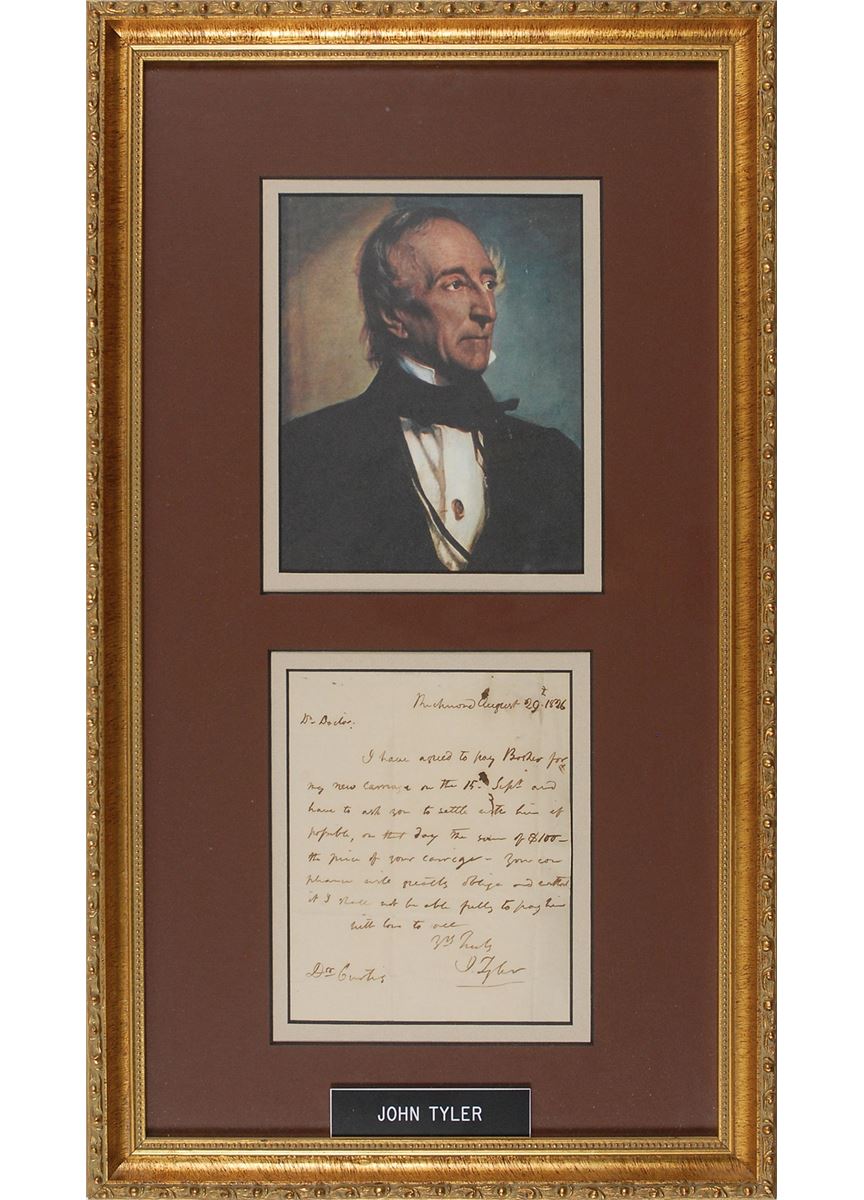 Richmond August 29t. 1826
Dr. Doctor.
I have agreed to pay Bosher for
my new carriage on the 15. Sept and
have to ask you to settle with him if
possible, on that day the sum of $100—
the price of your carriage — Your com
pliance will greatly oblige and without
it I shall not be able fully to pay him
with love to all
Yrs Truly
J. Tyler
Dr Curtis
JOHN TYLER